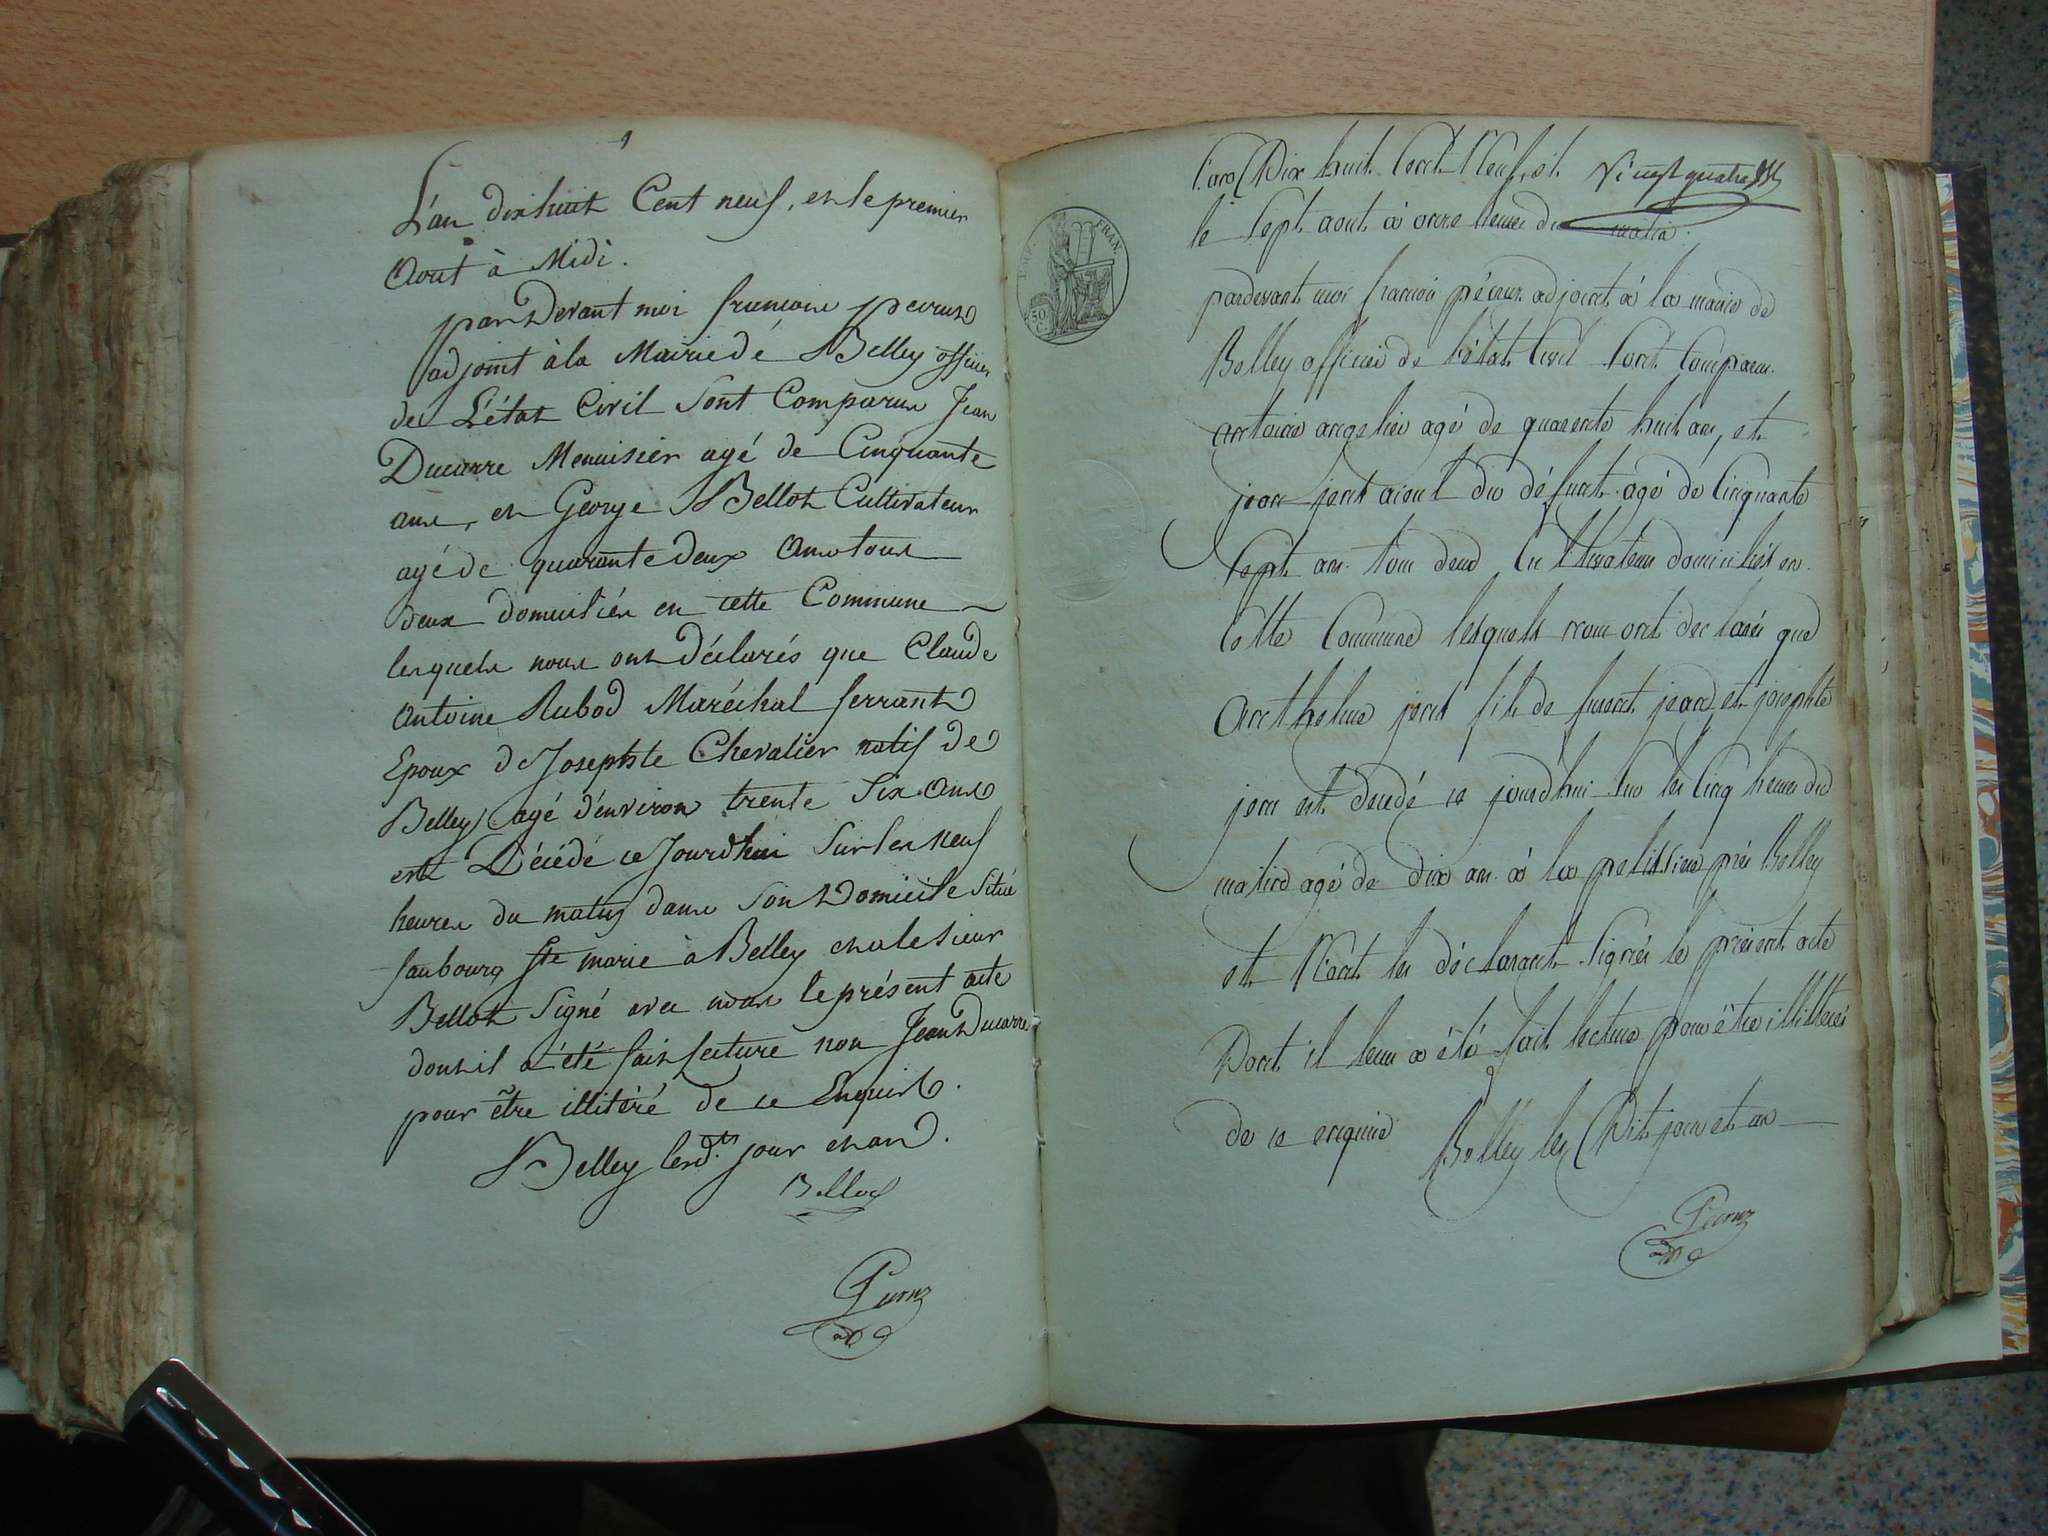 L'an dix huit Cent neuf, et le premier
Aout à Midi.
par Devant moi francois peerun
adjoint à la Mairie dé Belley officier
de L'état Civil Sont Comparus Jean
Ducarre Menuisier agé de Cinquante
ans, et George Bellot Cultivateur
agé de quarante deux Ans tous
deux domiciliés en cette Commune
lesquels nous ont Déclarés que Claude
Antoine Rubod Maréchal ferrant
Epoux de Josephte Chevalier natif de
Belley agé d'environ trente Six Ans
est Décédé ce Jourdhui Sur les neuf
heures du matin dans Son Domicile Situé
faubourg Ste marie à Belley et a le sieur
Bellot Signé avec nous le présent acte
dont il a été fait lecture non Jean Ducarre
pour être illitéré de ce Enquis.
Belley lesd.ts jour et an.
Bellot
EMP. FRAN
50 C.
L'an Dix huit Cent Neuf, et
Vingt quatre
le Sept aout à onze heures du matin.
pardevant moi francois adjoint à la mairie de
Belley officier de l'état Civil Sont Comparus
antoine angelier agé de quarente huit ans, et
jean jant aieul du défunt agé de Cinquante
Sept ans tous deux Cultivateurs domiciliés en
Cette Commune lesquels nous ont declarés que
Anthelme jant fils de furent jean et josephte
jant est decedé ce jourdhui Sur les Cinq heures du
matin agé de dix ans à la pelissiere près Belley
et N'ont les déclarants Signés le présent acte
Dont il leur a été fait lecture pour être illitterés
de ce enquis Belley les Dits jour et an